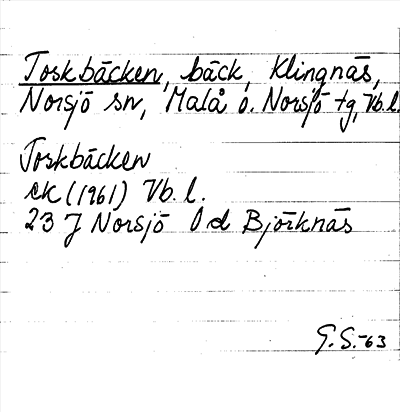 Toskbäcken, bäck, Klingnäs,
Norsjö sn, Malå o. Norsjö tg, Vb.l.
Toskbäcken
ek (1961) Vb. l.
23 J Norsjö 0 d Bjorknäs
G.S.-63